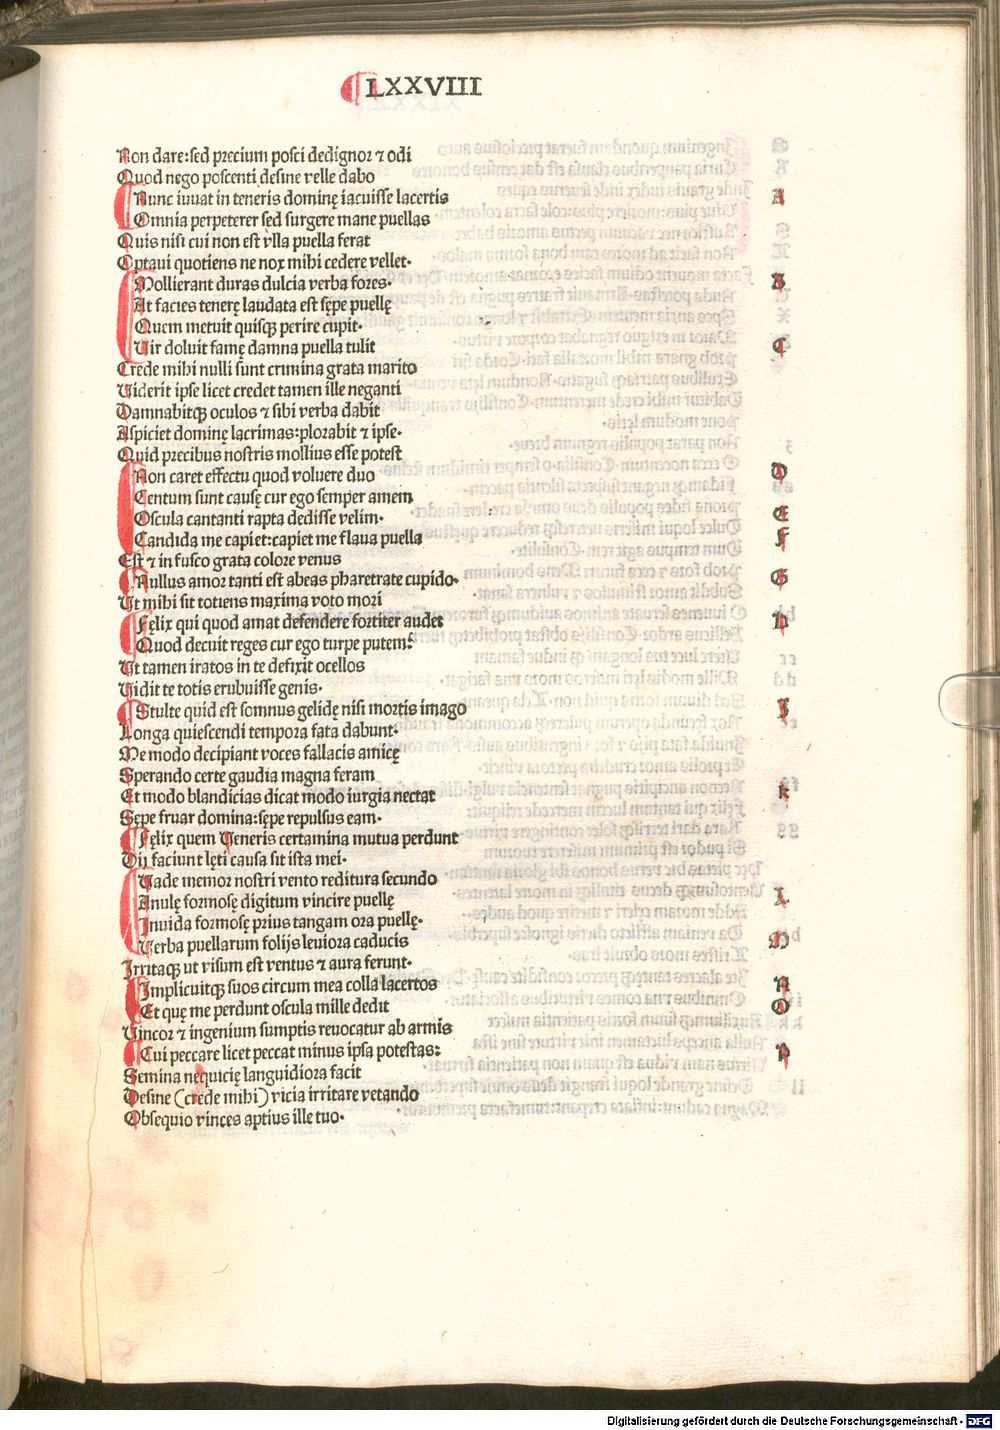 LXXVIII
Non dare:sed precium posci dedignor ⁊ odi
Quod nego poscenti desine velle dabo
Nunc iuuat in teneris dominę iacuisse lacertis
Omnia perpeterer sed surgere mane puellas
Quis nisi cui non est vlla puella ferat
Optaui quotiens ne nox mihi cedere vellet·
Mollierant duras dulcia verba fores·
At facies tenerę laudata est sępe puellę
Quem metuit quisqꝫ perire cupit·
Vir doluit famę damna puella tulit
Crede mihi nulli sunt crimina grata marito
Viderit ipse licet credet tamen ille neganti
Damnabitqꝫ oculos ⁊ sibi verba dabit
Aspiciet dominę lacrimas:plorabit ⁊ ipse·
Quid precibus nostris mollius esse potest
Non caret effectu quod voluere duo
Centum sunt causę cur ego semper amem
Oscula cantanti rapta dedisse velim·
Candida me capiet:capiet me flaua puella
Est ⁊ in fusco grata colore venus
Nullus amor tanti est abeas pharetrate cupido·
Ut mihi sit totiens maxima voto mori
Fęlix qui quod amat defendere fortiter audet
Quod decuit reges cur ego turpe putem?
Ut tamen iratos in te defixit ocellos
Vidit te totis erubuisse genis·
Stulte quid est somnus gelidę nisi mortis imago
Longa quiescendi tempora fata dabunt·
Me modo decipiant voces fallacis amicę
Sperando certe gaudia magna feram
Et modo blandicias dicat modo iurgia nectat
Sępe fruar domina:sępe repulsus eam·
Fęlix quem Veneris certamina mutua perdunt
Dij faciunt lęti causa sit ista mei·
Vade memor nostri vento reditura secundo
Anulę formosę digitum vincire puellę
Inuida formosę prius tangam ora puellę·
Verba puellarum folijs leuiora caducis
Irritaqꝫ ut visum est ventus ⁊ aura ferunt·
Implicuitqꝫ suos circum mea colla lacertos
Et quę me perdunt oscula mille dedit
Vincor ⁊ ingenium sumptis reuocatur ab armis
Cui peccare licet peccat minus ipsa potestas:
Semina nequicię languidiora facit
Desine (crede mihi) vicia irritare vetando
Obsequio vinces aptius ille tuo·
A
B
C
D
E
F
G
H
I
K
L
M
N
O
P
Digitalisierung gefördert durch die Deutsche Forschungsgemeinschaft - DFG